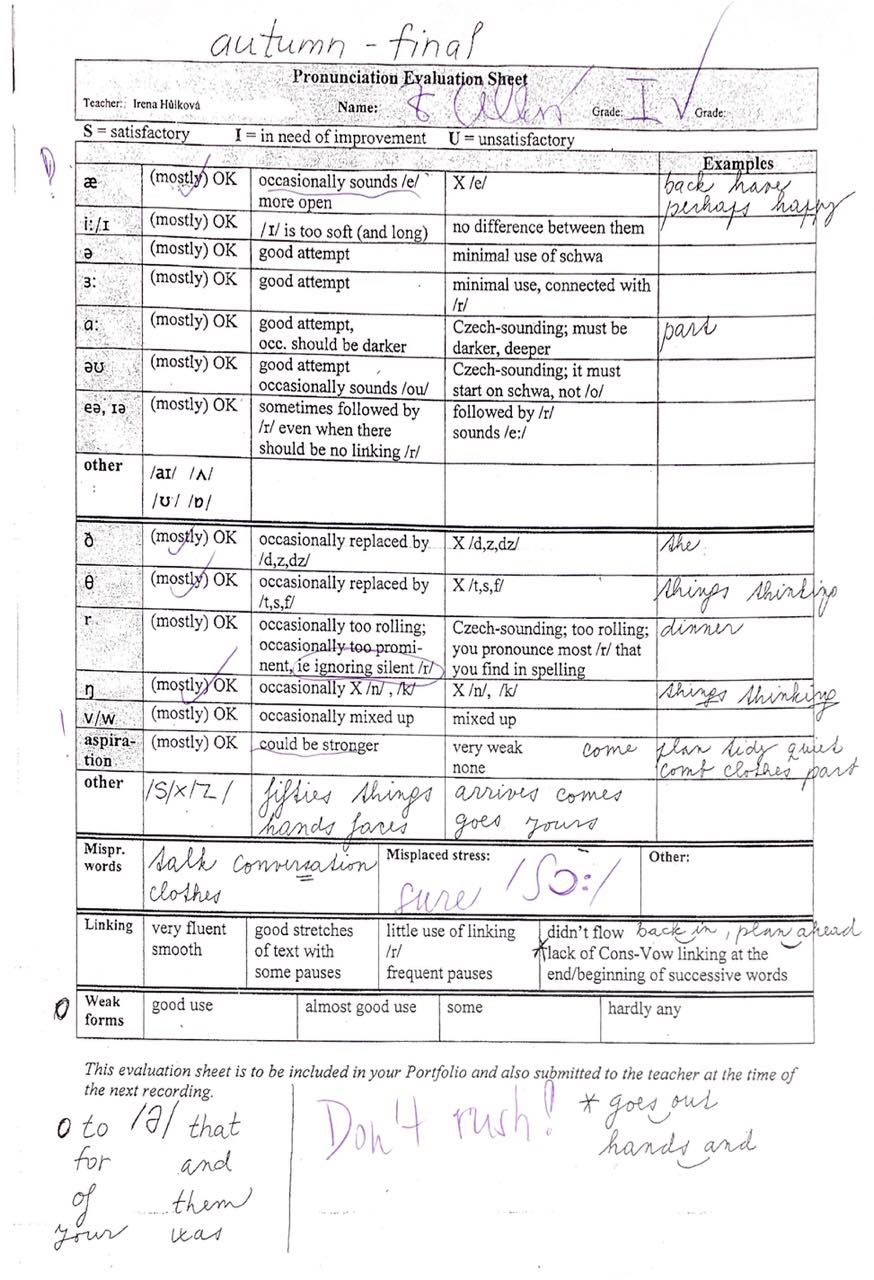 autumn - final
Pronunciation Evaluation Sheet
Teacher: Irena Hůlková Name: Grade: I Grade:
S = satisfactory I = in need of improvement U = unsatisfactory
Examples
æ (mostly) OK occasionally sounds /e/ X /e/ back have
more open perhaps happy
i:/ɪ (mostly) OK /ɪ/ is too soft (and long) no difference between them
ə (mostly) OK good attempt minimal use of schwa
ɜ: (mostly) OK good attempt minimal use, connected with
/r/
ɑ: (mostly) OK good attempt, Czech-sounding; must be part
occ. should be darker darker, deeper
əʊ (mostly) OK good attempt Czech-sounding; it must
occasionally sounds /ou/ start on schwa, not /o/
eə, ɪə (mostly) OK sometimes followed by followed by /r/
/r/ even when there sounds /e:/
should be no linking /r/
other /aɪ/ /ʌ/
: /ʊ/ /ɒ/
ð (mostly) OK occasionally replaced by X /d,z,dz/ the
/d,z,dz/
θ (mostly) OK occasionally replaced by X /t,s,f/ things thinking
/t,s,f/
r (mostly) OK occasionally too rolling; Czech-sounding; too rolling; dinner
occasionally too promi- you pronounce most /r/ that
nent, ie ignoring silent /r/ you find in spelling
ŋ (mostly) OK occasionally X /n/ , /k/ X /n/, /k/ things thinking
! v/w (mostly) OK occasionally mixed up mixed up
aspira- (mostly) OK could be stronger very weak come plan tidy quiet
tion none comb clothes part
other /S/x/Z/ fifties things arrives comes
hands faces goes yours
Mispr. talk conversation Misplaced stress: Other:
words clothes sure /ʃɔ:/
Linking very fluent good stretches little use of linking didn't flow back in, plan ahead
smooth of text with /r/ *lack of Cons-Vow linking at the
some pauses frequent pauses end/beginning of successive words
O Weak good use almost good use some hardly any
forms
This evaluation sheet is to be included in your Portfolio and also submitted to the teacher at the time of
the next recording.
O to /ə/ that
for and
of them
your was
Don't rush!
* goes out
hands and